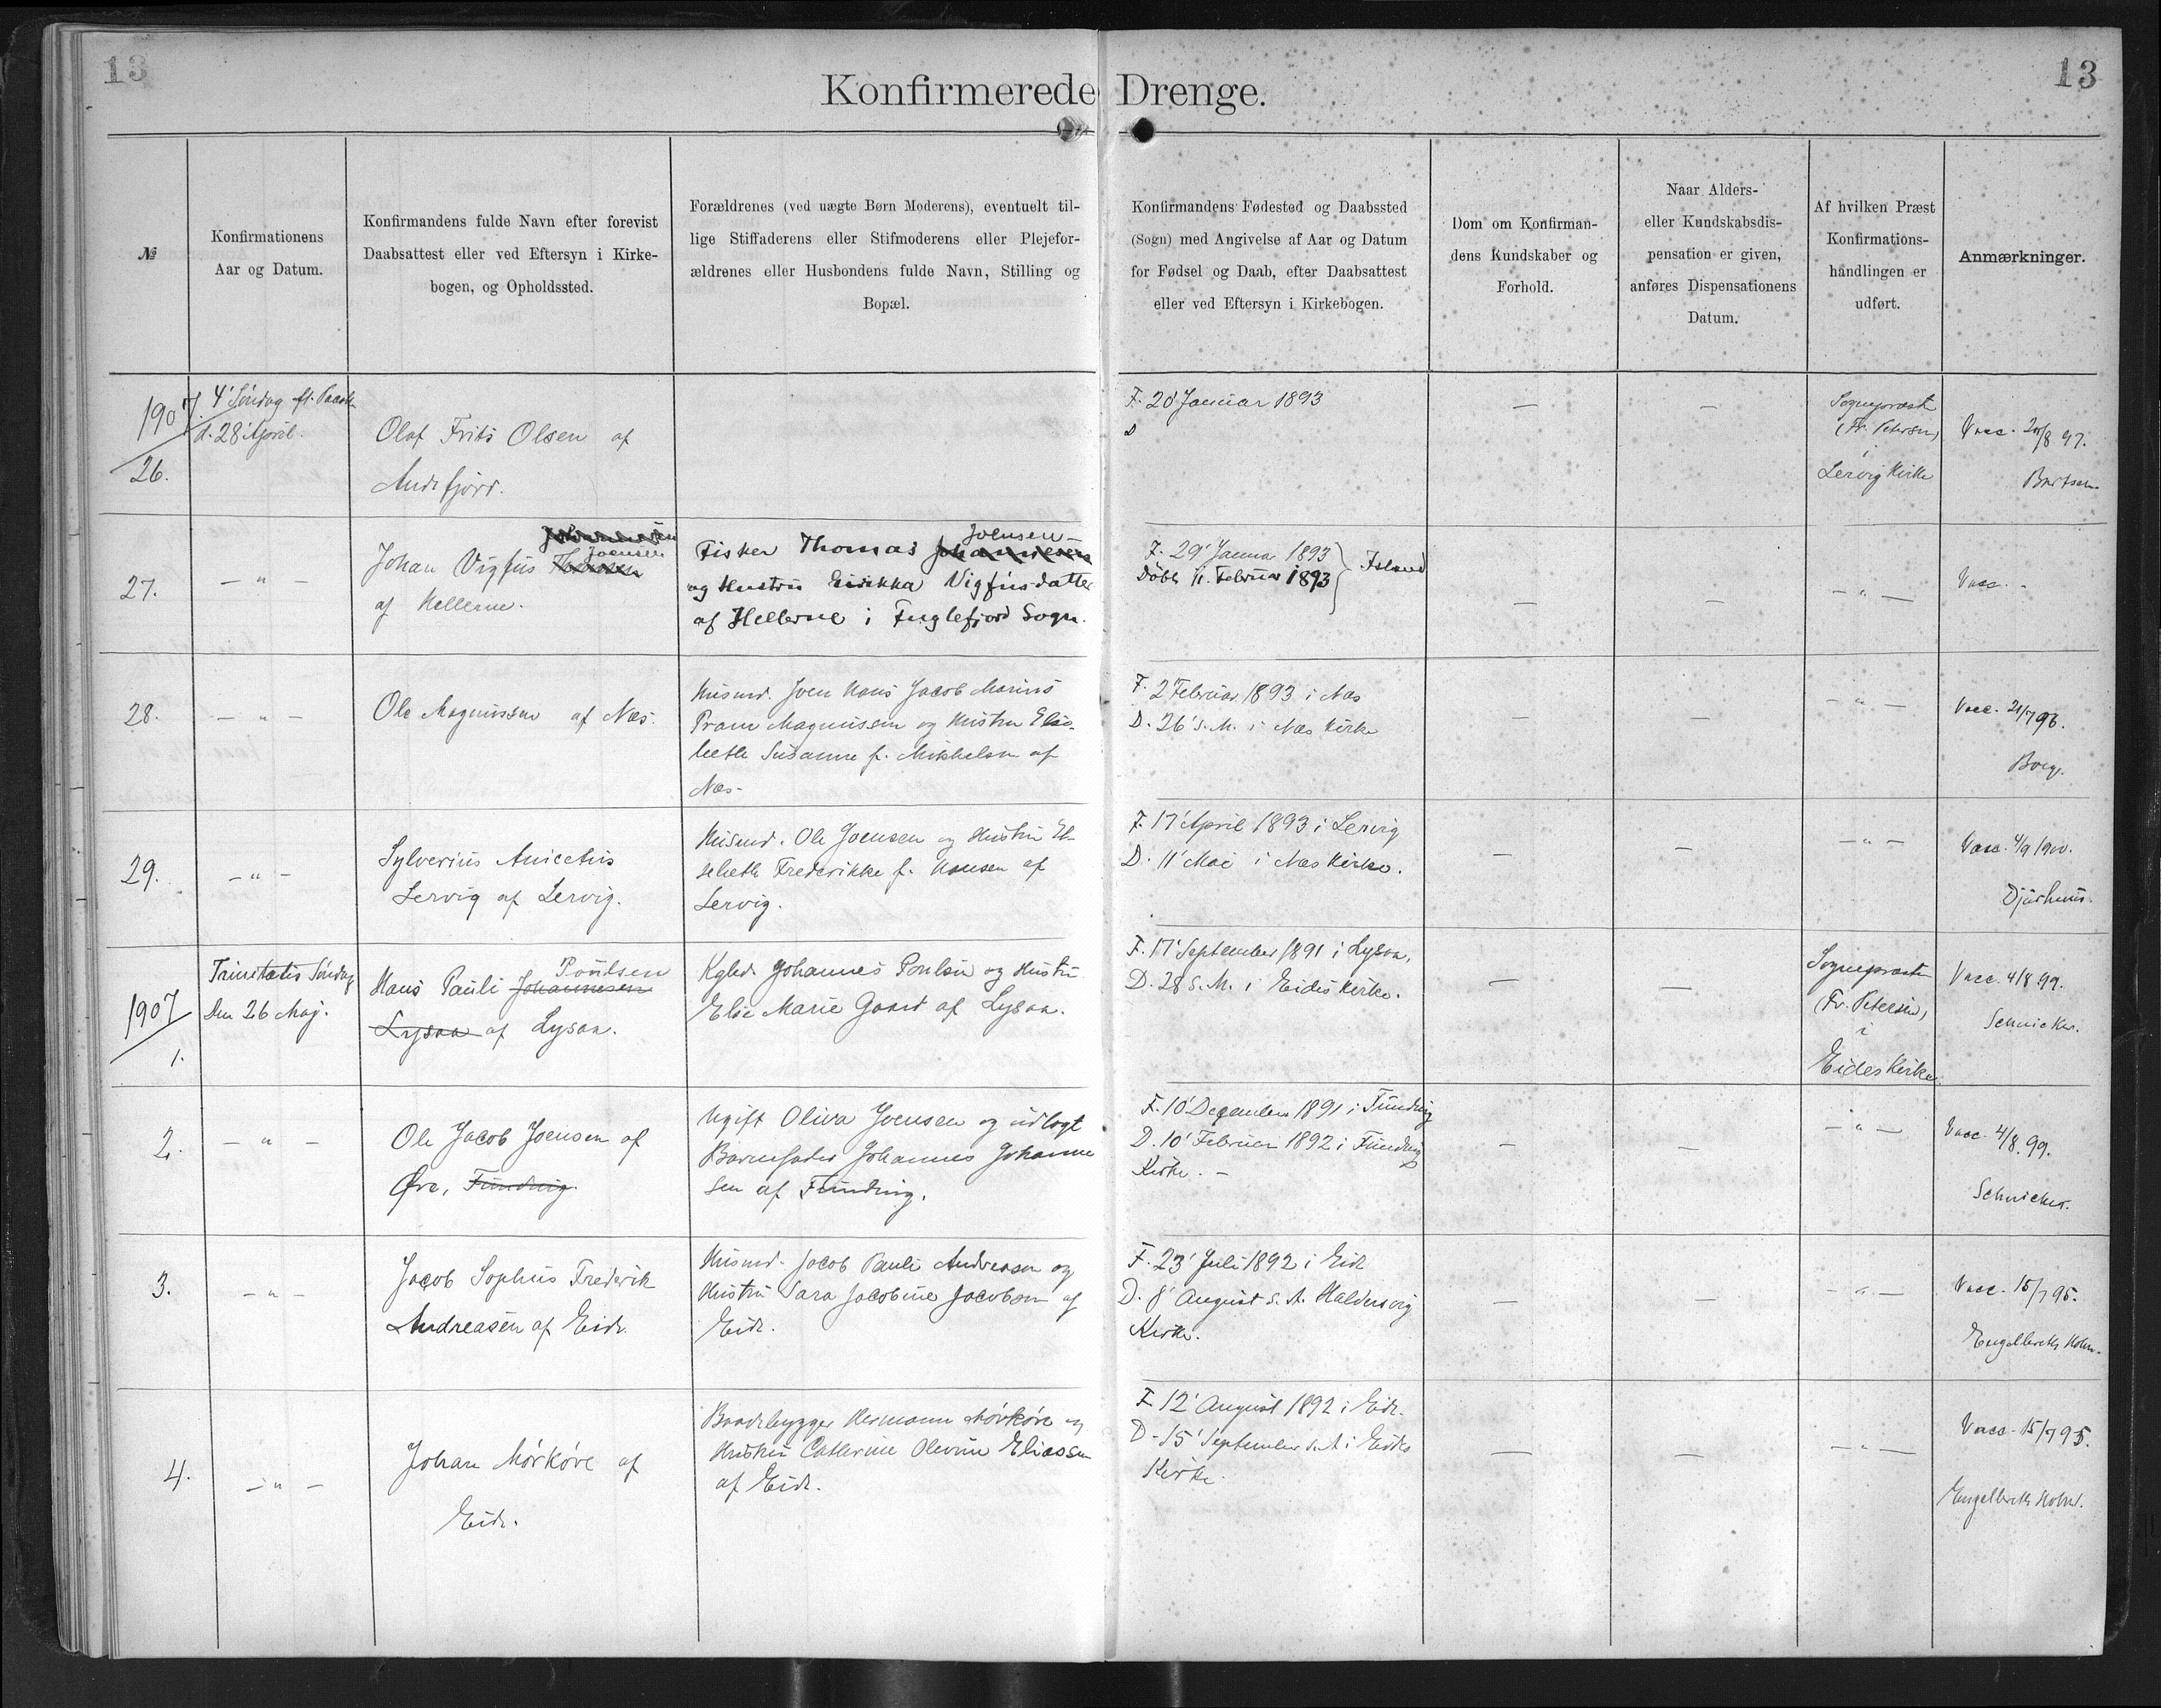 13
13
Konfirmerede Drenge.
№
Konfirmationens
Aar og Datum.
Konfirmandens fulde Navn efter forevist
Daabsattest eller ved Eftersyn i Kirke-
bogen, og Opholdssted.
Forældrenes (ved uægte Børn Moderens), eventuelt til-
lige Stiffaderens eller Stifmoderens eller Plejefor-
ældrenes eller Husbondens fulde Navn, Stilling og
Bopæl.
Konfirmandens Fødested og Daabssted
(Sogn) med Angivelse af Aar og Datum
for Fødsel og Daab, efter Daabsattest
eller ved Eftersyn i Kirkebogen.
Dom om Konfirman-
dens Kundskaber og
Forhold.
Naar Alders-
eller Kundskabsdis-
pensation er given,
anføres Dispensationens
Datum.
Af hvilken Præst
Konfirmations-
handlingen er
udført.
Anmærkninger.
1907.
26.
4' Søndag ft. Paask
d. 28' April.
Olaf Frits Olsen af
Andefjord.
F. 20' Januar 1893
D
—
—
Sognepræst
(Fr. Petersen)
i
Lervig Kirke
Vacc. 20/8 97.
27.
— " —
Johannesen
Joensen
Johan Vigfus Thomsen
af Hellerne.
Joensen
Fisker Thomas Johannesen
og Hustru Eirikka Vigfusdatter
af Hellerne i Fuglefjord Sogn.
F. 29' Januar 1893
Döbt 11. Februar 1893 } Island
—
—
— " —
Vacc. -
28.
— " —
Ole Magnussen af Næs.
Husmd. Joen Hans Jacob Marius
Fram Magnussen og Hustru Else-
beth Susanne f. Mikkelsen af
Næs-
F. 2' Februar 1893 i Næs
D. 26' s. M. i Næs Kirke
—
—
— " —
Vacc. 21/7 96.
29.
— " —
Sylverius Anicetus
Lervig af Lervig.
Husmd. Ole Joensen og Hustru El-
sebeth Frederikke f. Hansen af
Lervig.
F. 17' April 1893 i Lervig
D. 11' Mai i Næs Kirke.
—
—
— " —
Vacc. 4/9 1900.
Djurhuus.
1907
1.
Trinitatis Søndag
den 26 Maj.
Poulsen
Hans Pauli Johannesen
Lysaa af Lysaa.
Kgled. Johannes Poulsen og Hustru
Else Marie Gaard af Lysaa.
F. 17' September 1891 i Lysaa,
D. 28 s. M. i Eides Kirke.
—
—
Sognepræst
(Fr. Petersen)
i
Eides Kirke
Vacc. 4/8 99.
Schwicker.
2.
— " —
Ole Jacob Joensen af
Øre, Funding
Ugift Oliva Joensen og udlagt
Barnefader Johannes Johanne
sen af Funding.
F. 10' December 1891 i Funding
D. 10' Februar 1892 i Funding
Kirke. -
—
—
— " —
Vacc. 4/8. 99.
Schwicker.
3.
— " —
Jacob Sophus Frederik
Andreasen af Eide
Husmd. Jacob Pauli Andreasen og
Hustru Sara Jacobine Jacobsen af
Eide.
F. 23' Juli 1892 i Eide
D. 8' August s. A. Haldersvig
Kirke.
—
—
— " —
Vacc. 15/7 95.
Engelbreth Holm.
4.
— " —
Johan Mórkóre af
Eide.
Baadebygger Hermann Mórkóre og
Hustru Cathrine Olevine Eliassen
af Eide.
F. 12' August 1892 i Eide.
D. 15' September s. A i Eides
Kirke.
—
—
— " —
Vacc. 15/7 95.
Engelbreth Holm.